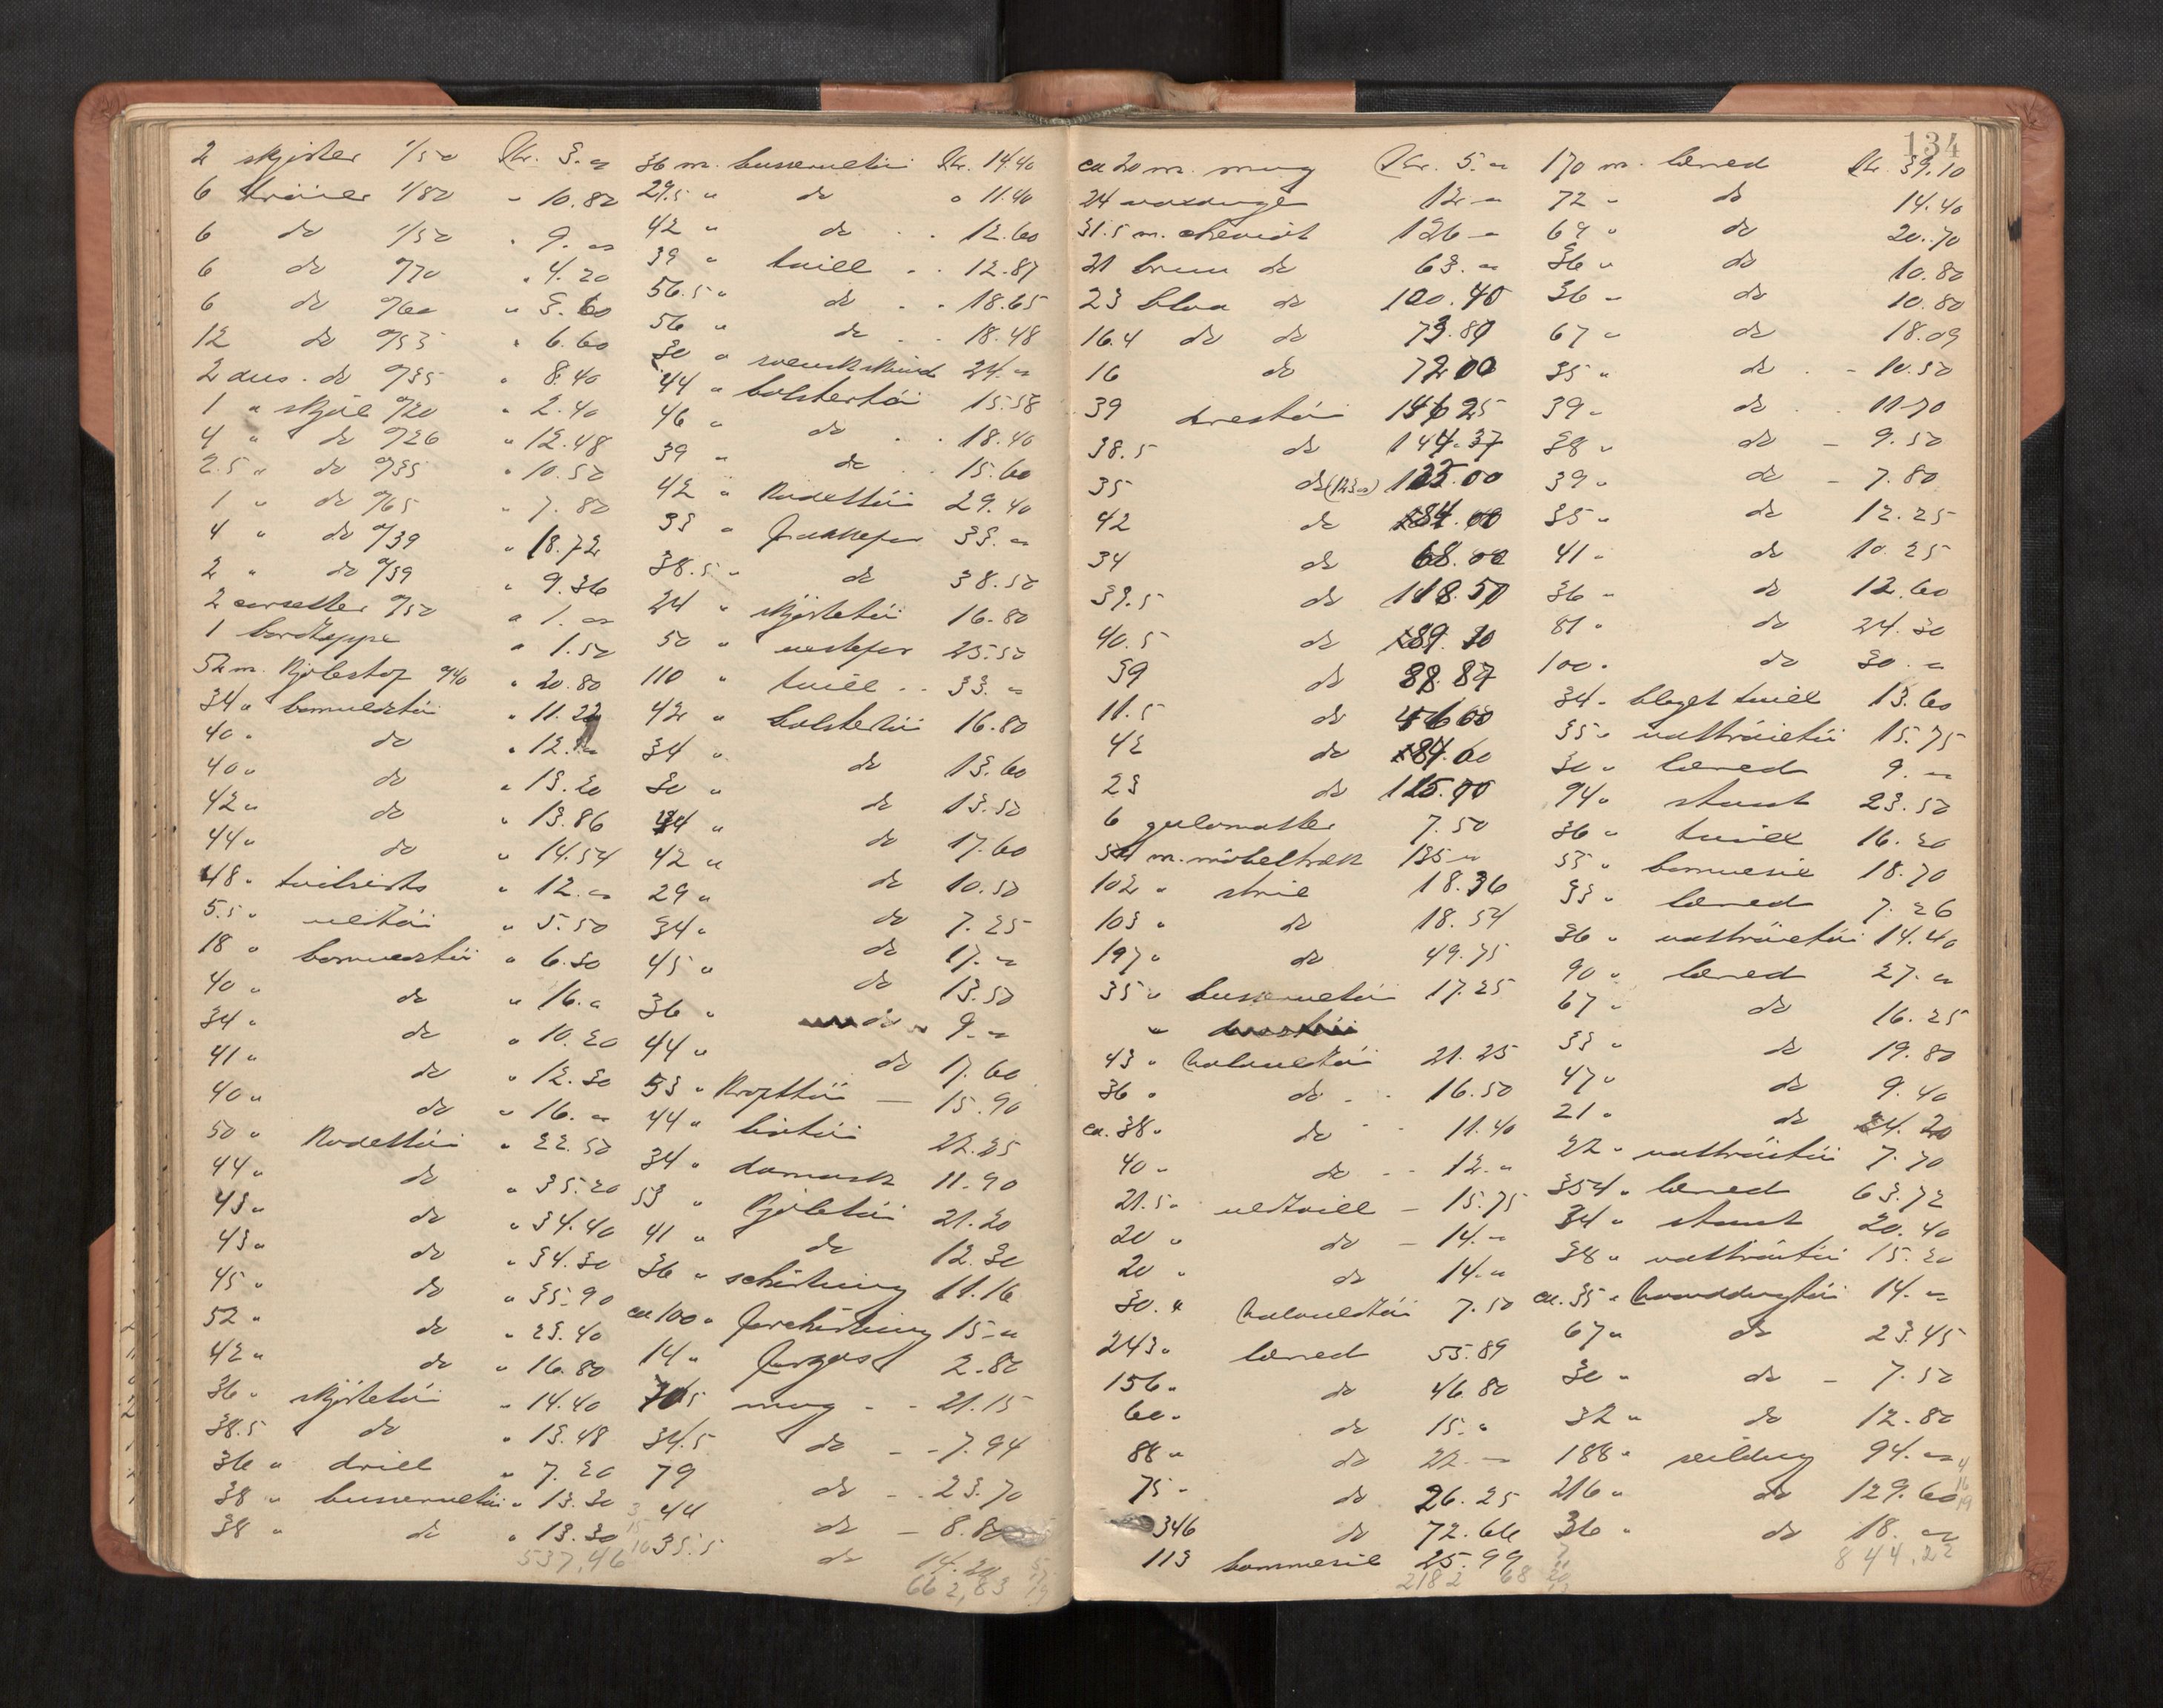 2 skjorter 1/50 Kr. 3.-
6 trøier 1/80 - 10.80
6 do 1/50 " 9.-
6 do 0/70 " 4.20
6 do 0/60 " 3.60
12 do 0/55 " 6.60
2 dus. do 0/35 " 8.40
1 " skjøl 0/20 " 2.40
4 " do 0/26 " 12.48
2.5 " do 0/35 " 10.50
1 " do 0/65 " 7.80
4 " do 0/39 " 18.72
2 " do 0/39 " 9.36
2 corsetter 0/50 " 1.-
1 bordteppe " 1.50
52 m. kjolestof 0/40 " 20.80
34 " bomuldstøi " 11.22
40 " do " 12.-
40 " do " 13.20
42 " do " 13.86
44 " do " 14.54
48 " " 12.-
5.5 " uldtøi " 5.50
18 " bomuldstøi " 6.30
40 " do " 16.-
34 " do " 10.20
41 " do " 12.30
40 " do " 16.-
50 " Kadettøi " 22.50
44 " do " 35.20
43 " do " 34.40
43 " do " 34.30
45 " do " 35.90
52 " do " 23.40
42 " do " 16.80
36 " skjortetøi " 14.40
38.5 do " 13.48
36 " drill " 7.20
38 " busserultøi " 13.30
38 " do " 13.30
537,46
36 m. busserultøi Kr. 14.40
29.5 " do " 11.40
42 " do 12.60
39 " tvill 12.87
56.5 " do 18.65
56 " do 18.48
30 " svenskskind 24.-
44 " bolstertøi 15.58
46 " do 18.40
39 " do 15.60
42 " Kadettøi 29.40
33 " Jakkefor 33.-
38.5 " do 38.50
24 " skjortetøi 16.80
50 " vestefor 25.50
110 " tvill 33.-
42 " bolstertøi 16.80
34 " do 13.60
30 " do 13.50
44 " do 17.60
42 " do 10.50
29 " do 7.25
34 " do 17.-
45 " do 13.50
36 " do 9.-
44 " do 17.60
53 " Kropttøi 15.90
44 " listøi 22.25
34 " damask 11.90
53 " Kjoletøi 21.20
41 " do 12.30
36 " schirting 11.16
ca 100 " forschirting 15.-
14 " forgas 2.80
70.5 mug 21.15
34.5 do 7.94
79 do 23.70
44 do 8.80
35.5 do 14.20
662,83
134
ca 20 m. mug Kr. 5.-
24 voksduge 12.-
31.5 m. cheviot 126.-
21 brun do 63.-
23 blaa do 100.40
16.4 do do 73.80
16 do 72.00
39 drestøi 146.25
38.5 do 144.37
35 do (123.-) 122.00
42 do 84.00
34 do 68.00
39.5 do 118.50
40.5 do 89.10
39 do 88.87
11.5 do 46.00
42 do 84.00
23 do 115.00
6 gulvmatter 7.50
54 m. møbeltræk 135.-
102 " strie 18.36
103 " do 18.54
197 " do 49.75
35 " busserultøi 17.25
43 " halvuldtøi 21.25
36 " do 16.50
ca. 38 " do 11.40
40 " do 12.-
21.5 " uldtvill 15.75
20 " do 14.-
20 " do 14.-
30 " halvuldtøi 7.50
243 " lærred 55.89
156 " do 46.80
60 " do 15.-
88 " do 22.-
75 " do 26.25
346 do 72.66
113 bommesie 25.99
2182 68
170 m. lærred Kr. 39.10
72 " do 14.40
69 " do 20.70
36 " do 10.80
36 " do 10.80
67 " do 18.09
35 " do 10.50
39 " do 11.70
38 " do 9.50
39 " do 7.80
35 " do 12.25
41 " do 10.25
36 " do 12.60
81 " do 24.30
100 " do 30.-
34 " bleget tvill 13.60
35 " nattrøietøi 15.75
30 " lærred 9.-
94 " stout 23.50
36 " tvill 16.20
55 " bommesie 18.70
33 " lærred 7.26
36 " nattrøietøi 14.40
90 " lærred 27.-
67 " do 16.25
33 " do 19.80
47 " do 9.40
21 " do 24.20
22 " nattrøietøi 7.70
354 " lærred 63.72
34 " stout 20.40
38 " nattrøietøi 15.20
ca. 35 " haanddugtøi 14.-
67 " do 23.45
30 " do 7.50
32 " do 12.80
188 " seildug 94.-
216 " do 129.60
36 " do 18.-
844,22